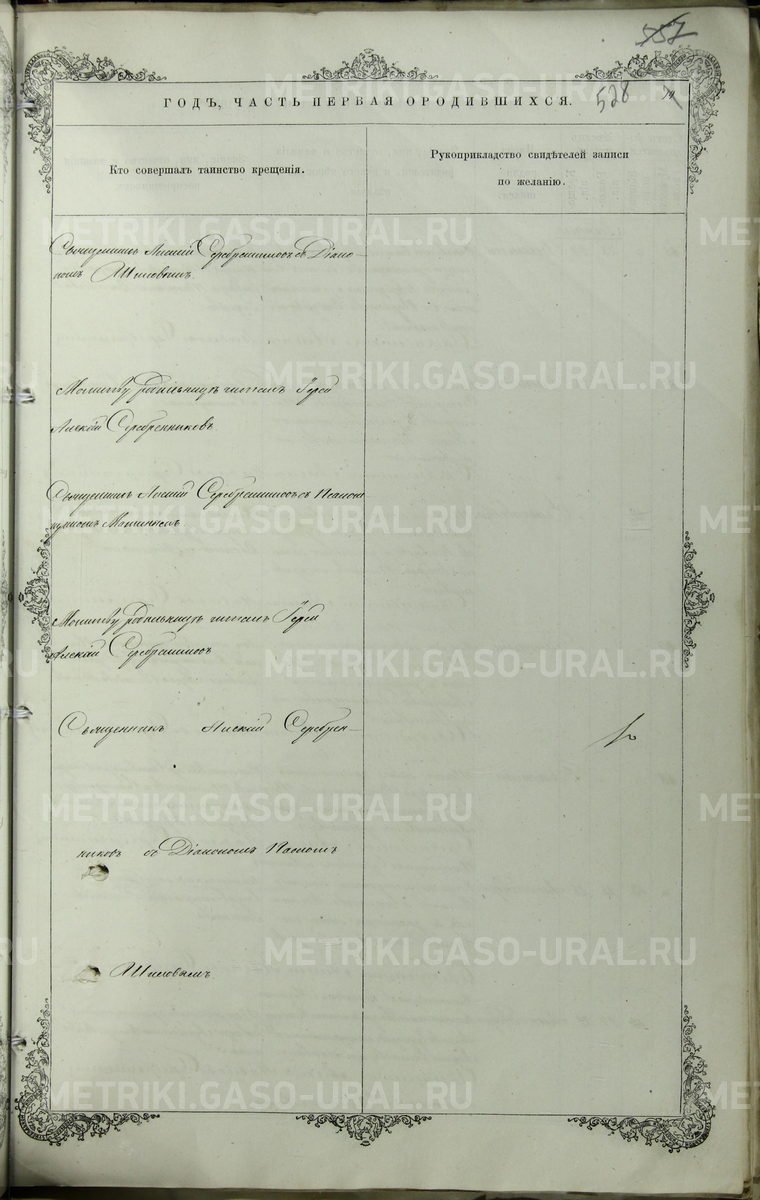 557
528
ГОДЪ, ЧАСТЬ ПЕРВАЯ О РОДИВШИХСЯ.
Кто совершалъ таинство крещенія.
Рукоприкладство свидѣтелей записи
по желанію.
Священникъ Алексій Серебренниковъ съ Діако-
номъ Шиловымъ.
Молитву родильницѣ читалъ Іерей
Алексій Серебренниковъ.
Священникъ Алексій Серебренниковъ съ Псалом
щикомъ
Молитву родильницѣ читалъ Іерей
Алексій Серебренниковъ
Священникъ Алексій Серебрен-
никовъ съ Діакономъ
Шиловымъ
METRIKI.GASO-URAL.RU